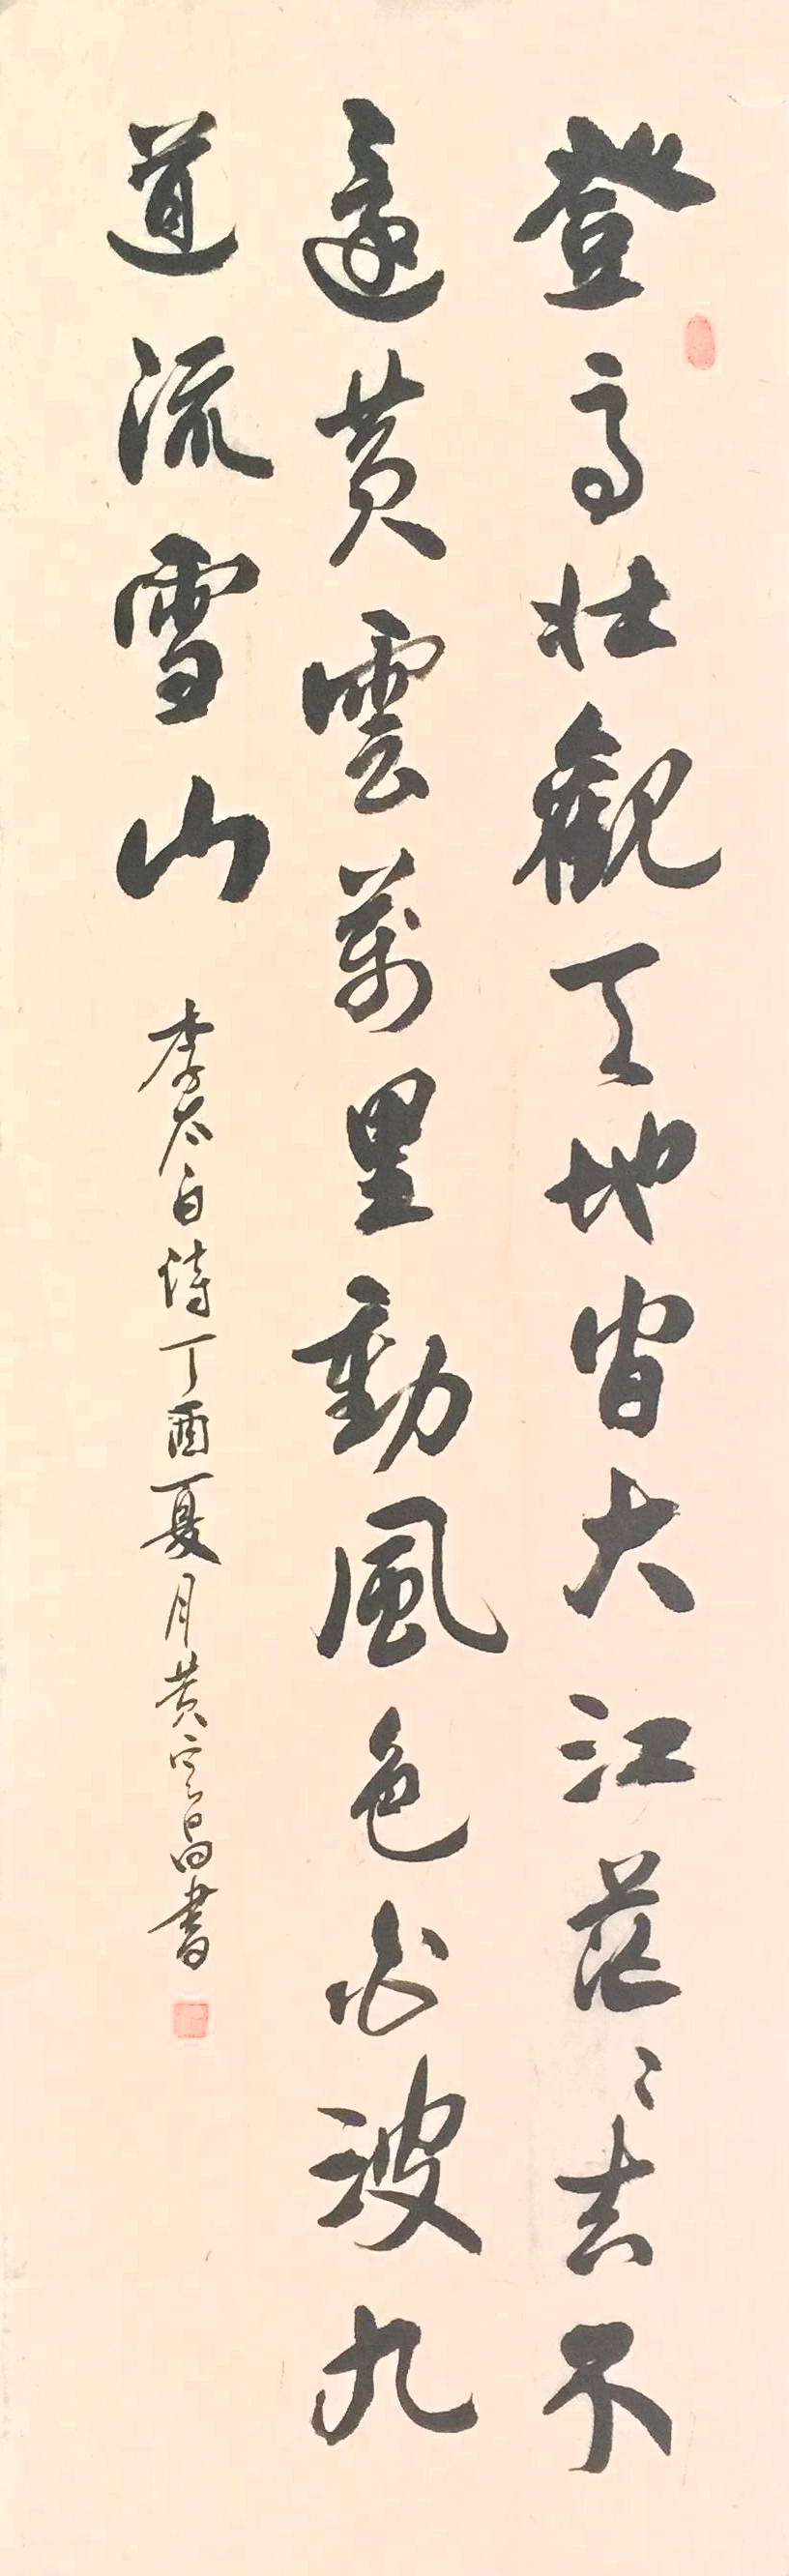 登高壯觀天地間大江茫々去不
還黄雲萬里動風色白波九
道流雪山
李太白詩丁酉夏月黄昌書